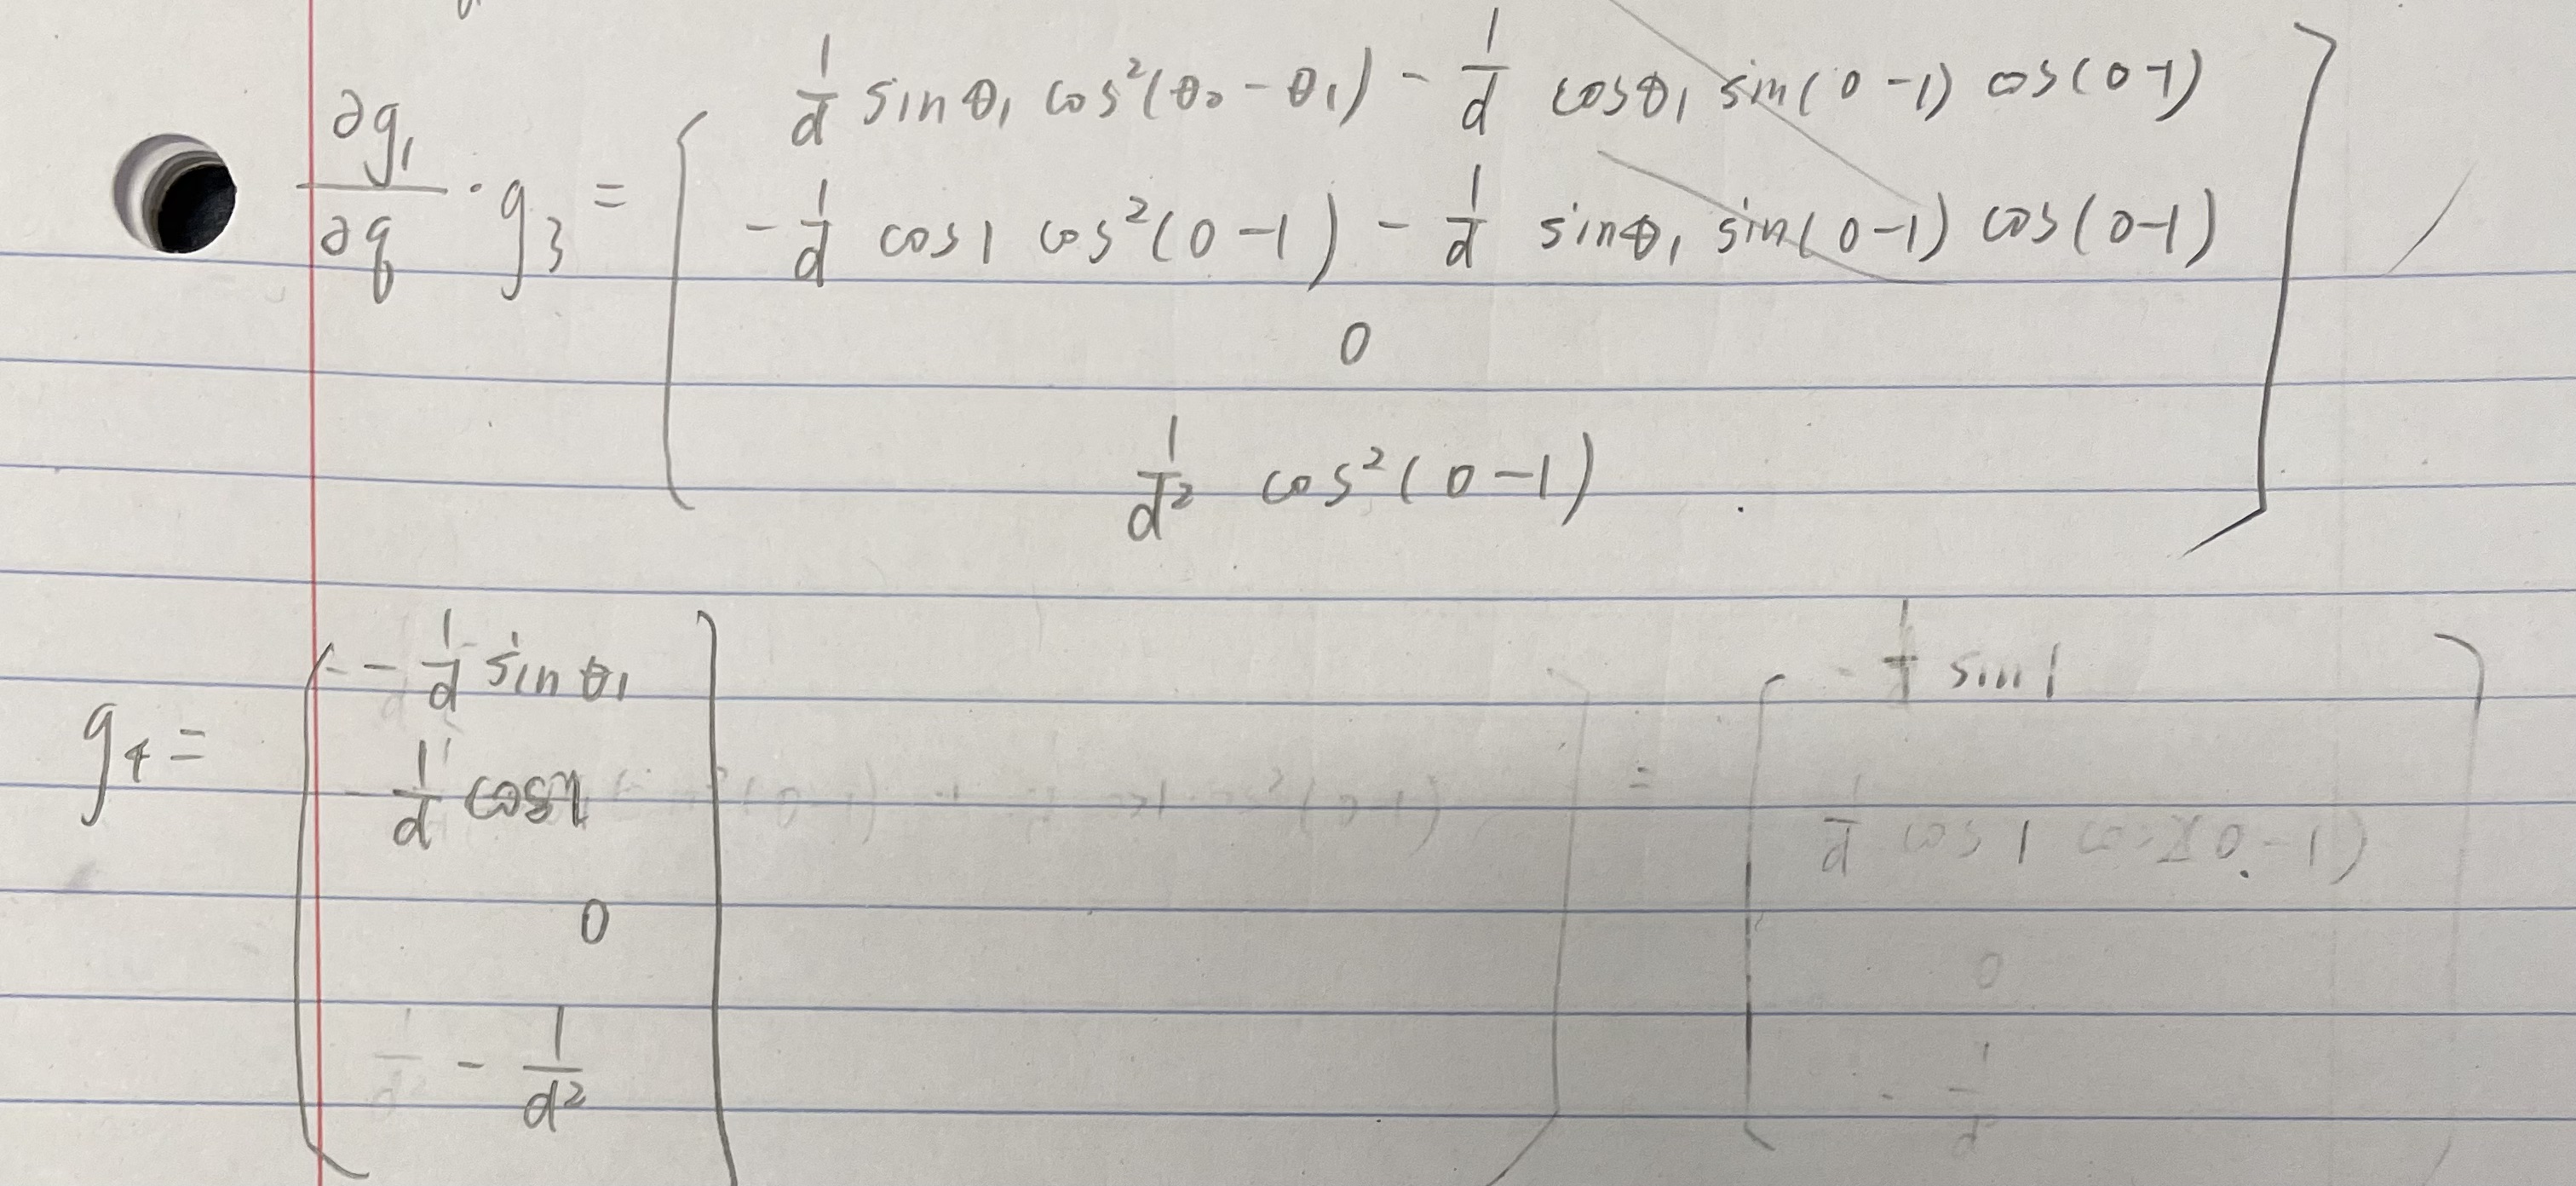 ∂g₁/∂q · g₃ = [ 1/d sinθ₁ cos²(θ₀ - θ₁) - 1/d cosθ₁ sin(0-1) cos(0-1)
- 1/d cos1 cos²(0-1) - 1/d sinθ₁ sin(0-1) cos(0-1)
0
1/d² cos²(0-1) ]
g₄ = [ - 1/d sinθ₁ ] = [ - 1/d sin1 ]
- 1/d cos1 1/d cos1 (0-1)
0 0
- 1/d² - 1/d